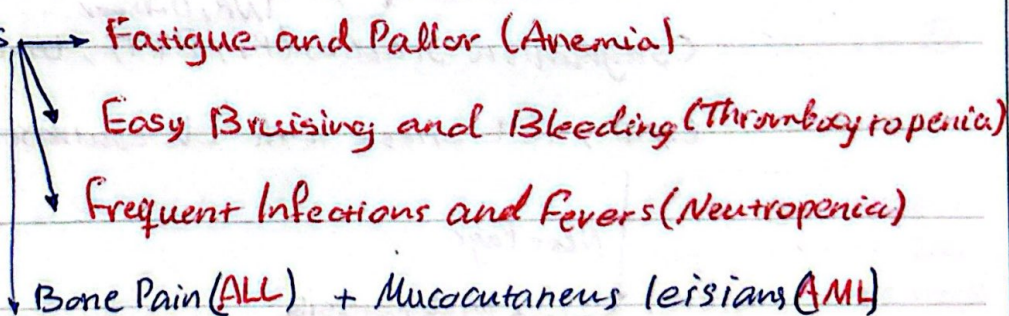 s → Fatigue and Pallor (Anemia)
Easy Bruising and Bleeding (Thrombocytopenia)
Frequent Infections and Fevers (Neutropenia)
Bone Pain (ALL) + Mucocutaneus leisians (AML)